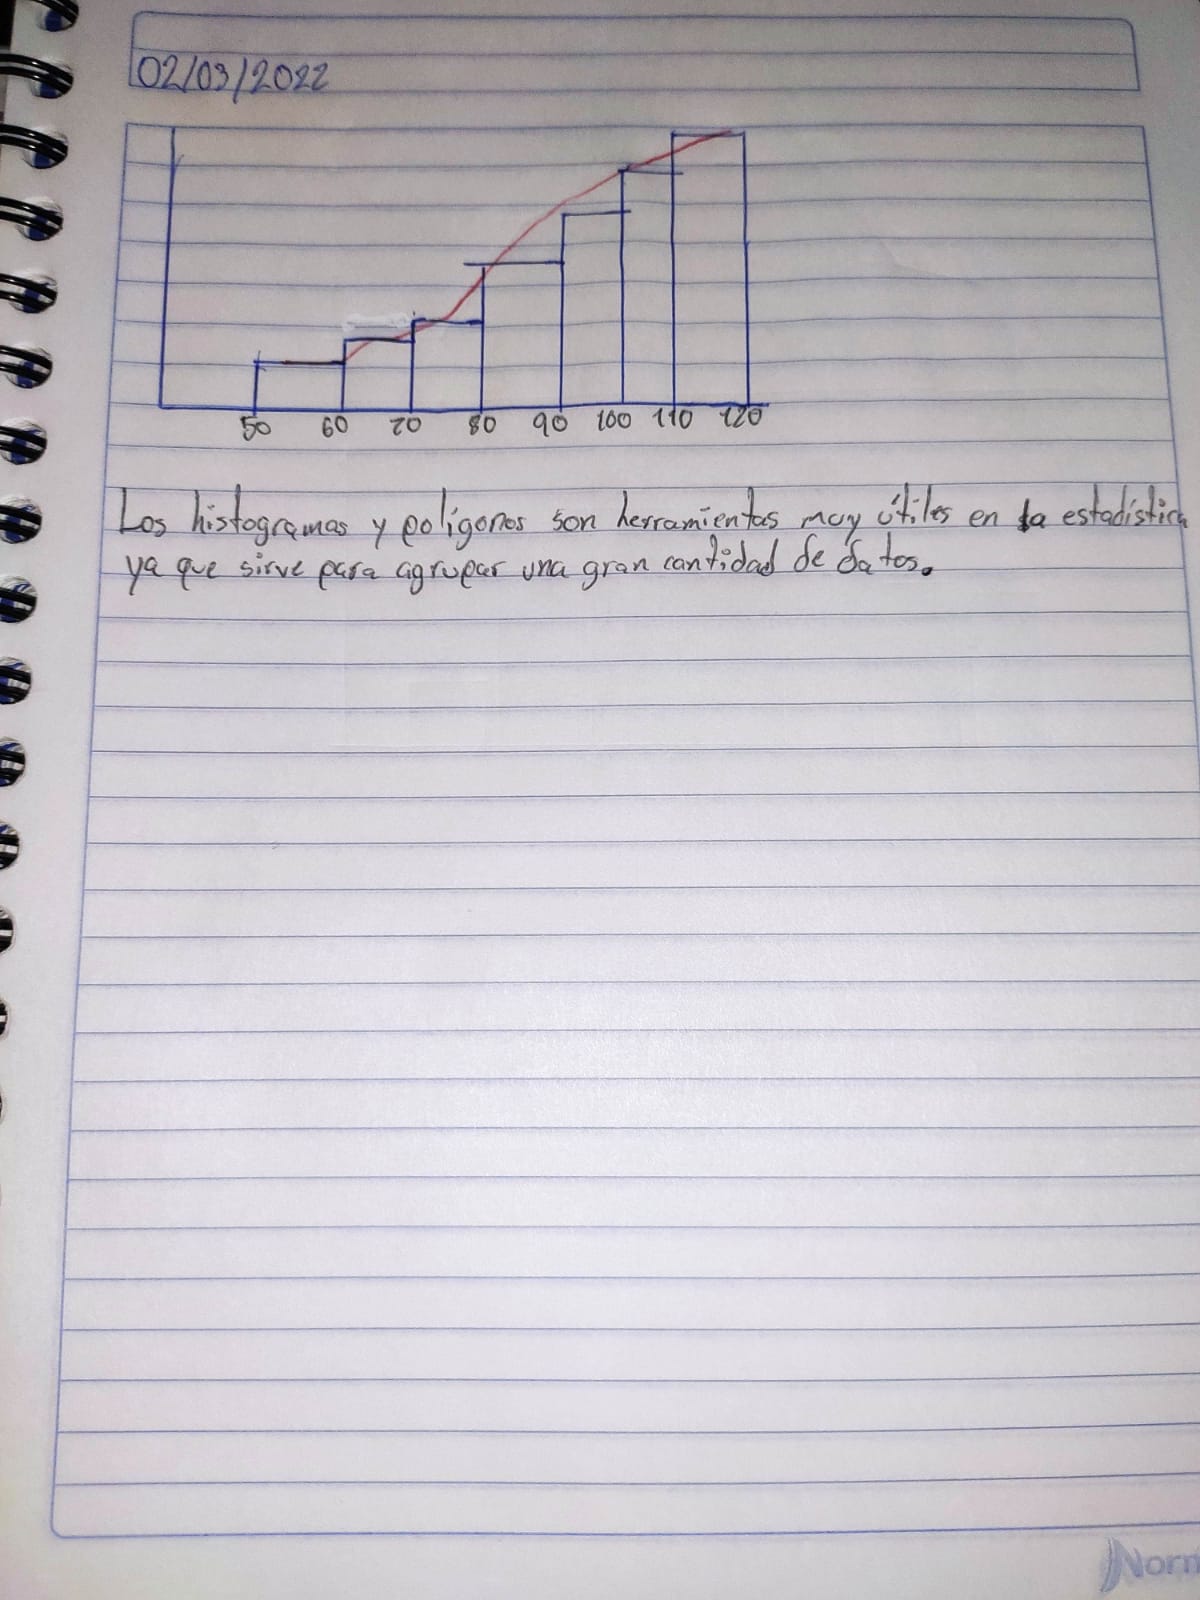 02/03/2022
50 60 70 80 90 100 110 120
Los histogramas y polígonos son herramientas muy útiles en la estadística
ya que sirve para agrupar una gran cantidad de datos.
Norm